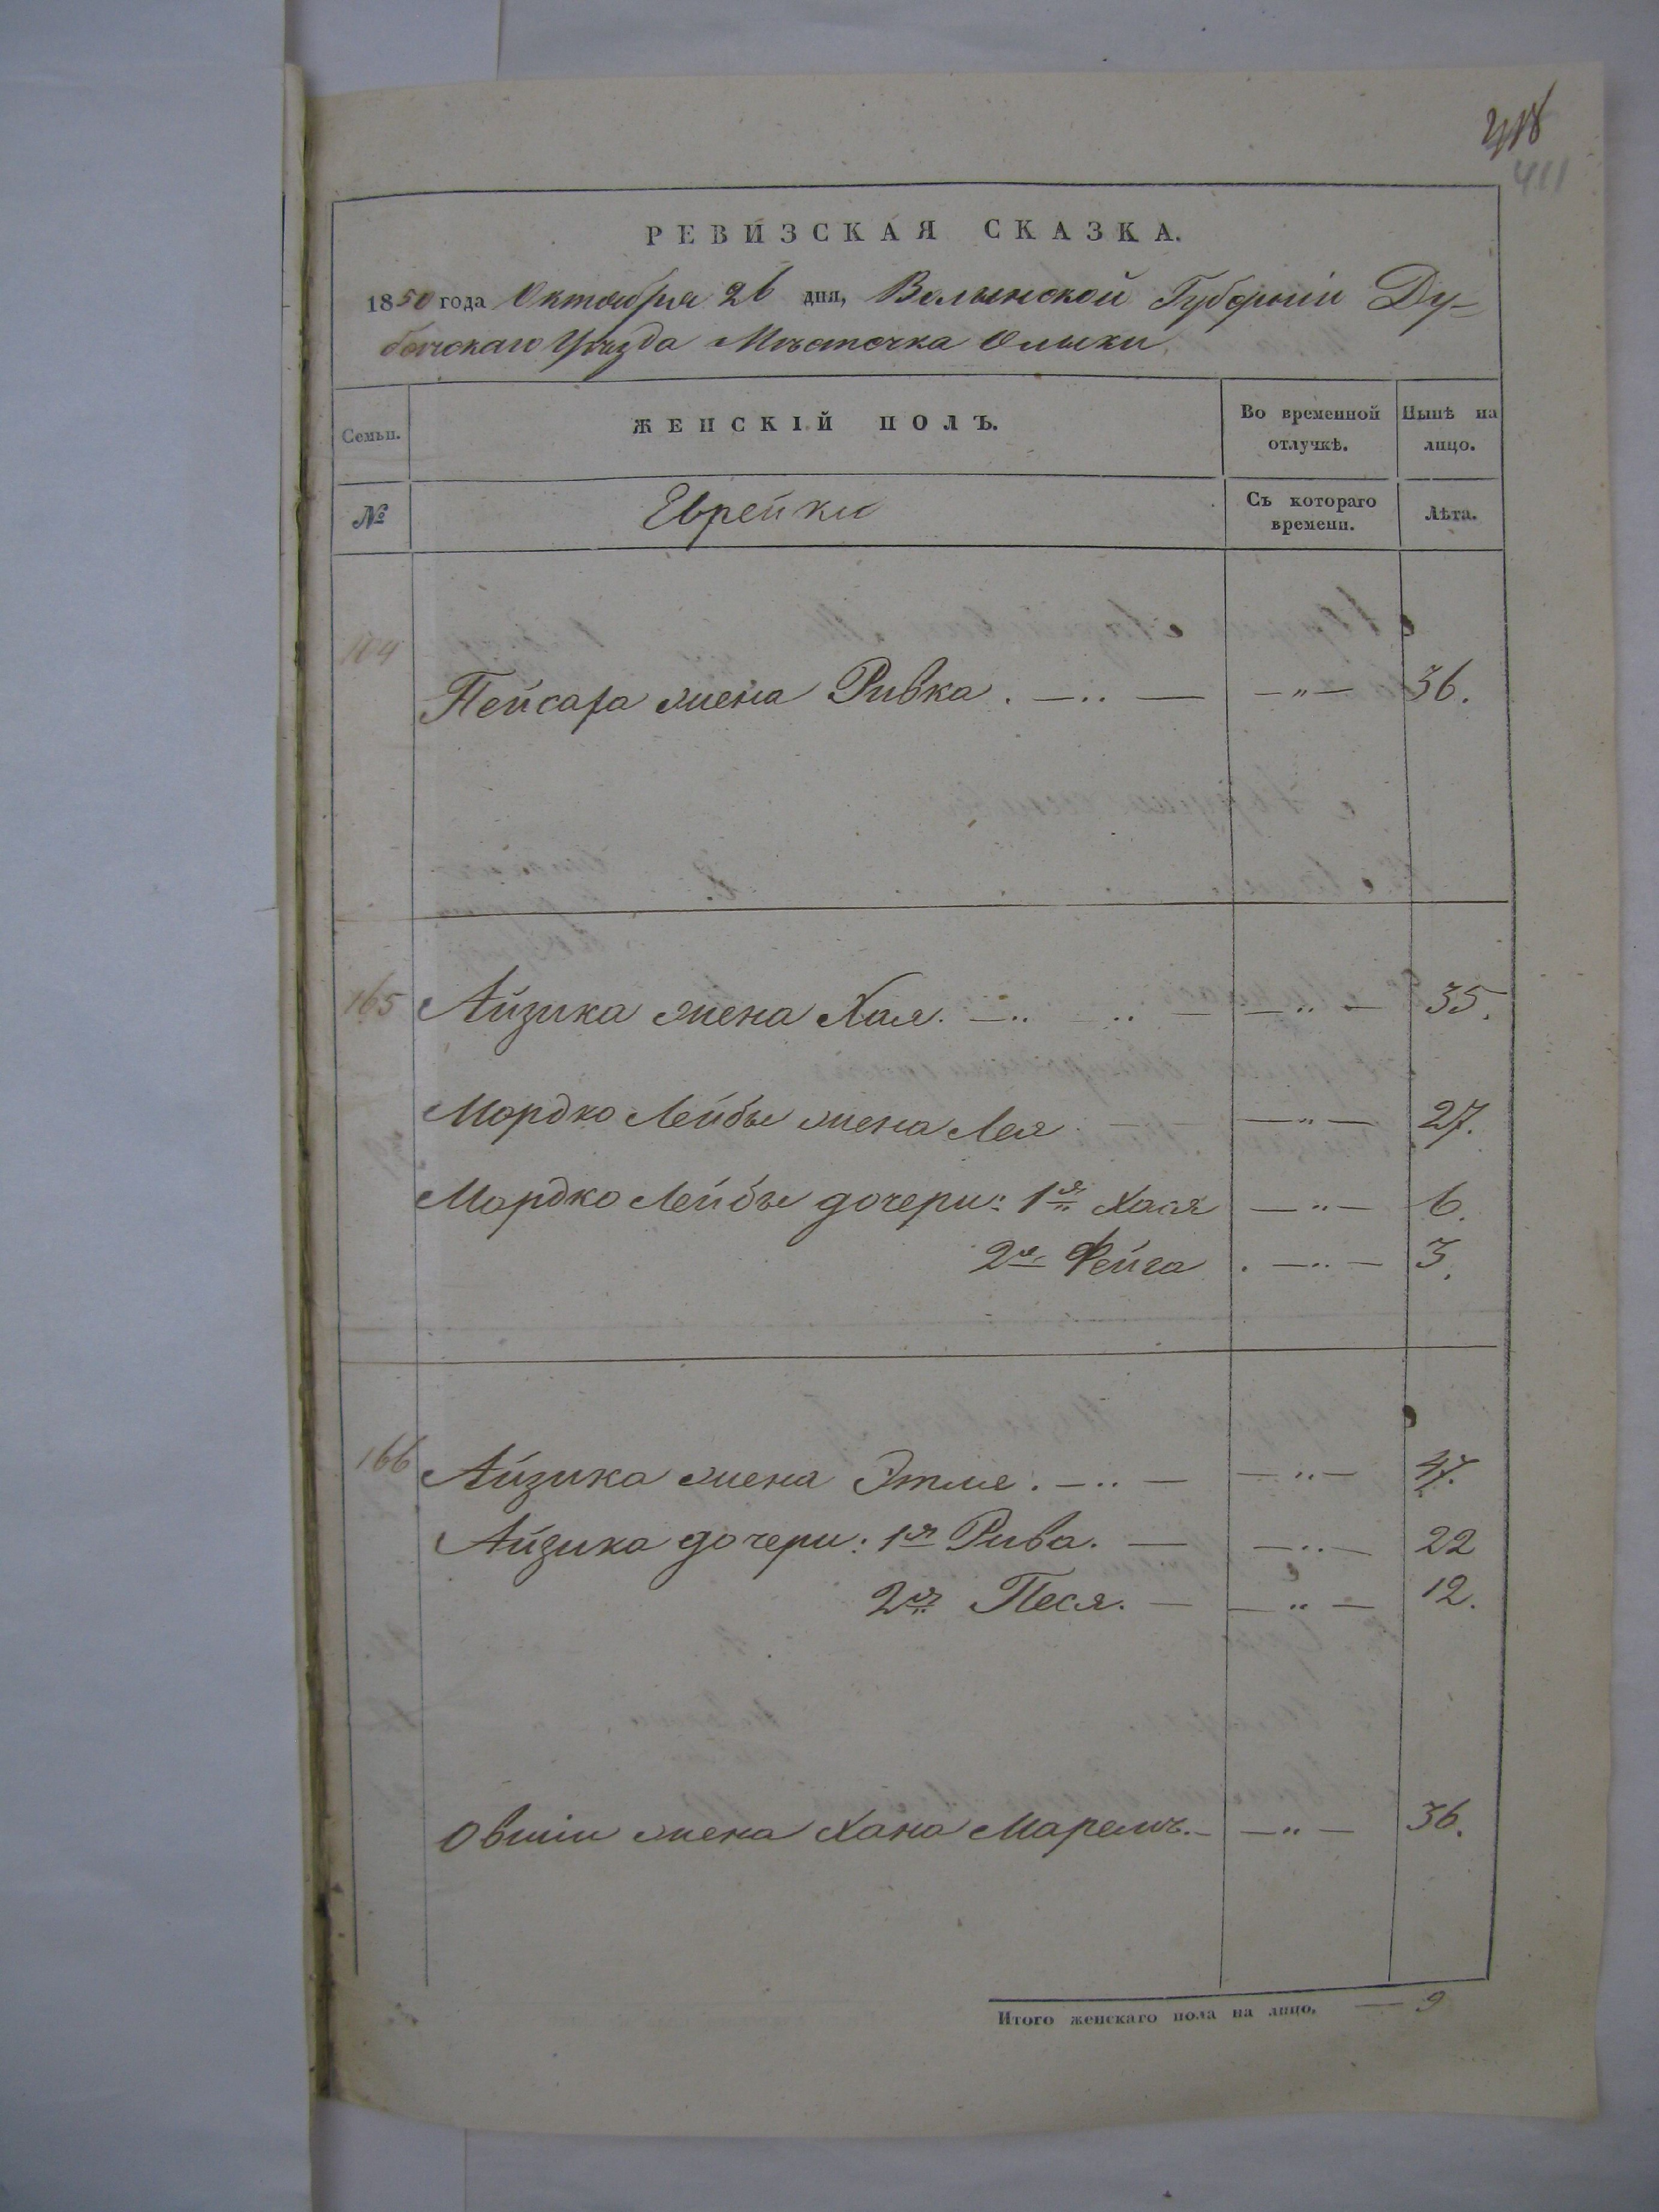 411
РЕВИЗСКАЯ СКАЗКА.
1850 года Октября 26 дня, Волынской Губерніи Ду-
бенскаго Уѣзда Мѣстечка Олыки
Семьи. ЖЕНСКІЙ ПОЛЪ. Во временной отлучкѣ. Нынѣ на лицо.
№ Еврейки Съ котораго времени. Лѣта.
164
Пейсаха жена Ривка . — .. — — „ — 36.
165 Айзика жена Хая. — .. .. — — .. — 35.
Мордко Лейбы жена Лея — „ — 27.
Мордко Лейбы дочери: 1я Хая — .. — 6.
2я Фейга . — .. — 3.
166 Айзика жена Этле . — .. — — .. — 47.
Айзика дочери: 1я Рива. — — .. — 22
2я Песя. — — „ — 12.
Овшіи жена Хана Маремъ. — — „ — 36.
Итого женскаго пола на лицо. — 9